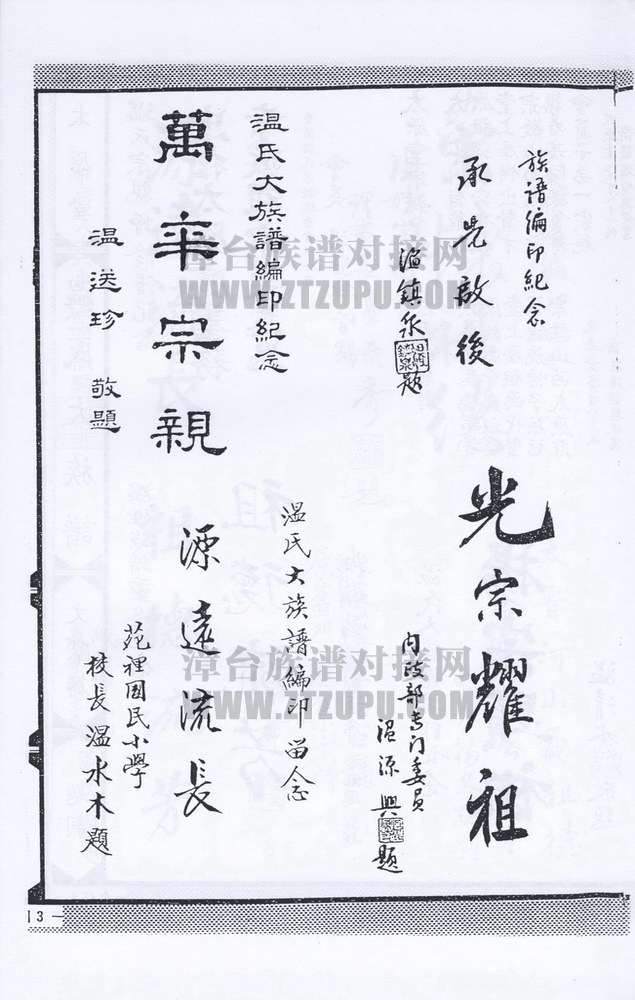 族譜編印紀念
承先啟後
溫鎮泉
題
光宗耀祖
內政部專门委員
溫源興
題
溫氏大族譜編印紀念
萬年宗親
溫送珍 敬題
溫氏大族譜編印留念
源遠流長
苑裡國民小學
校長溫水木題
漳台族谱对接网
WWW.ZTZUPU.COM
漳台族谱对接网
WWW.ZTZUPU.COM
3